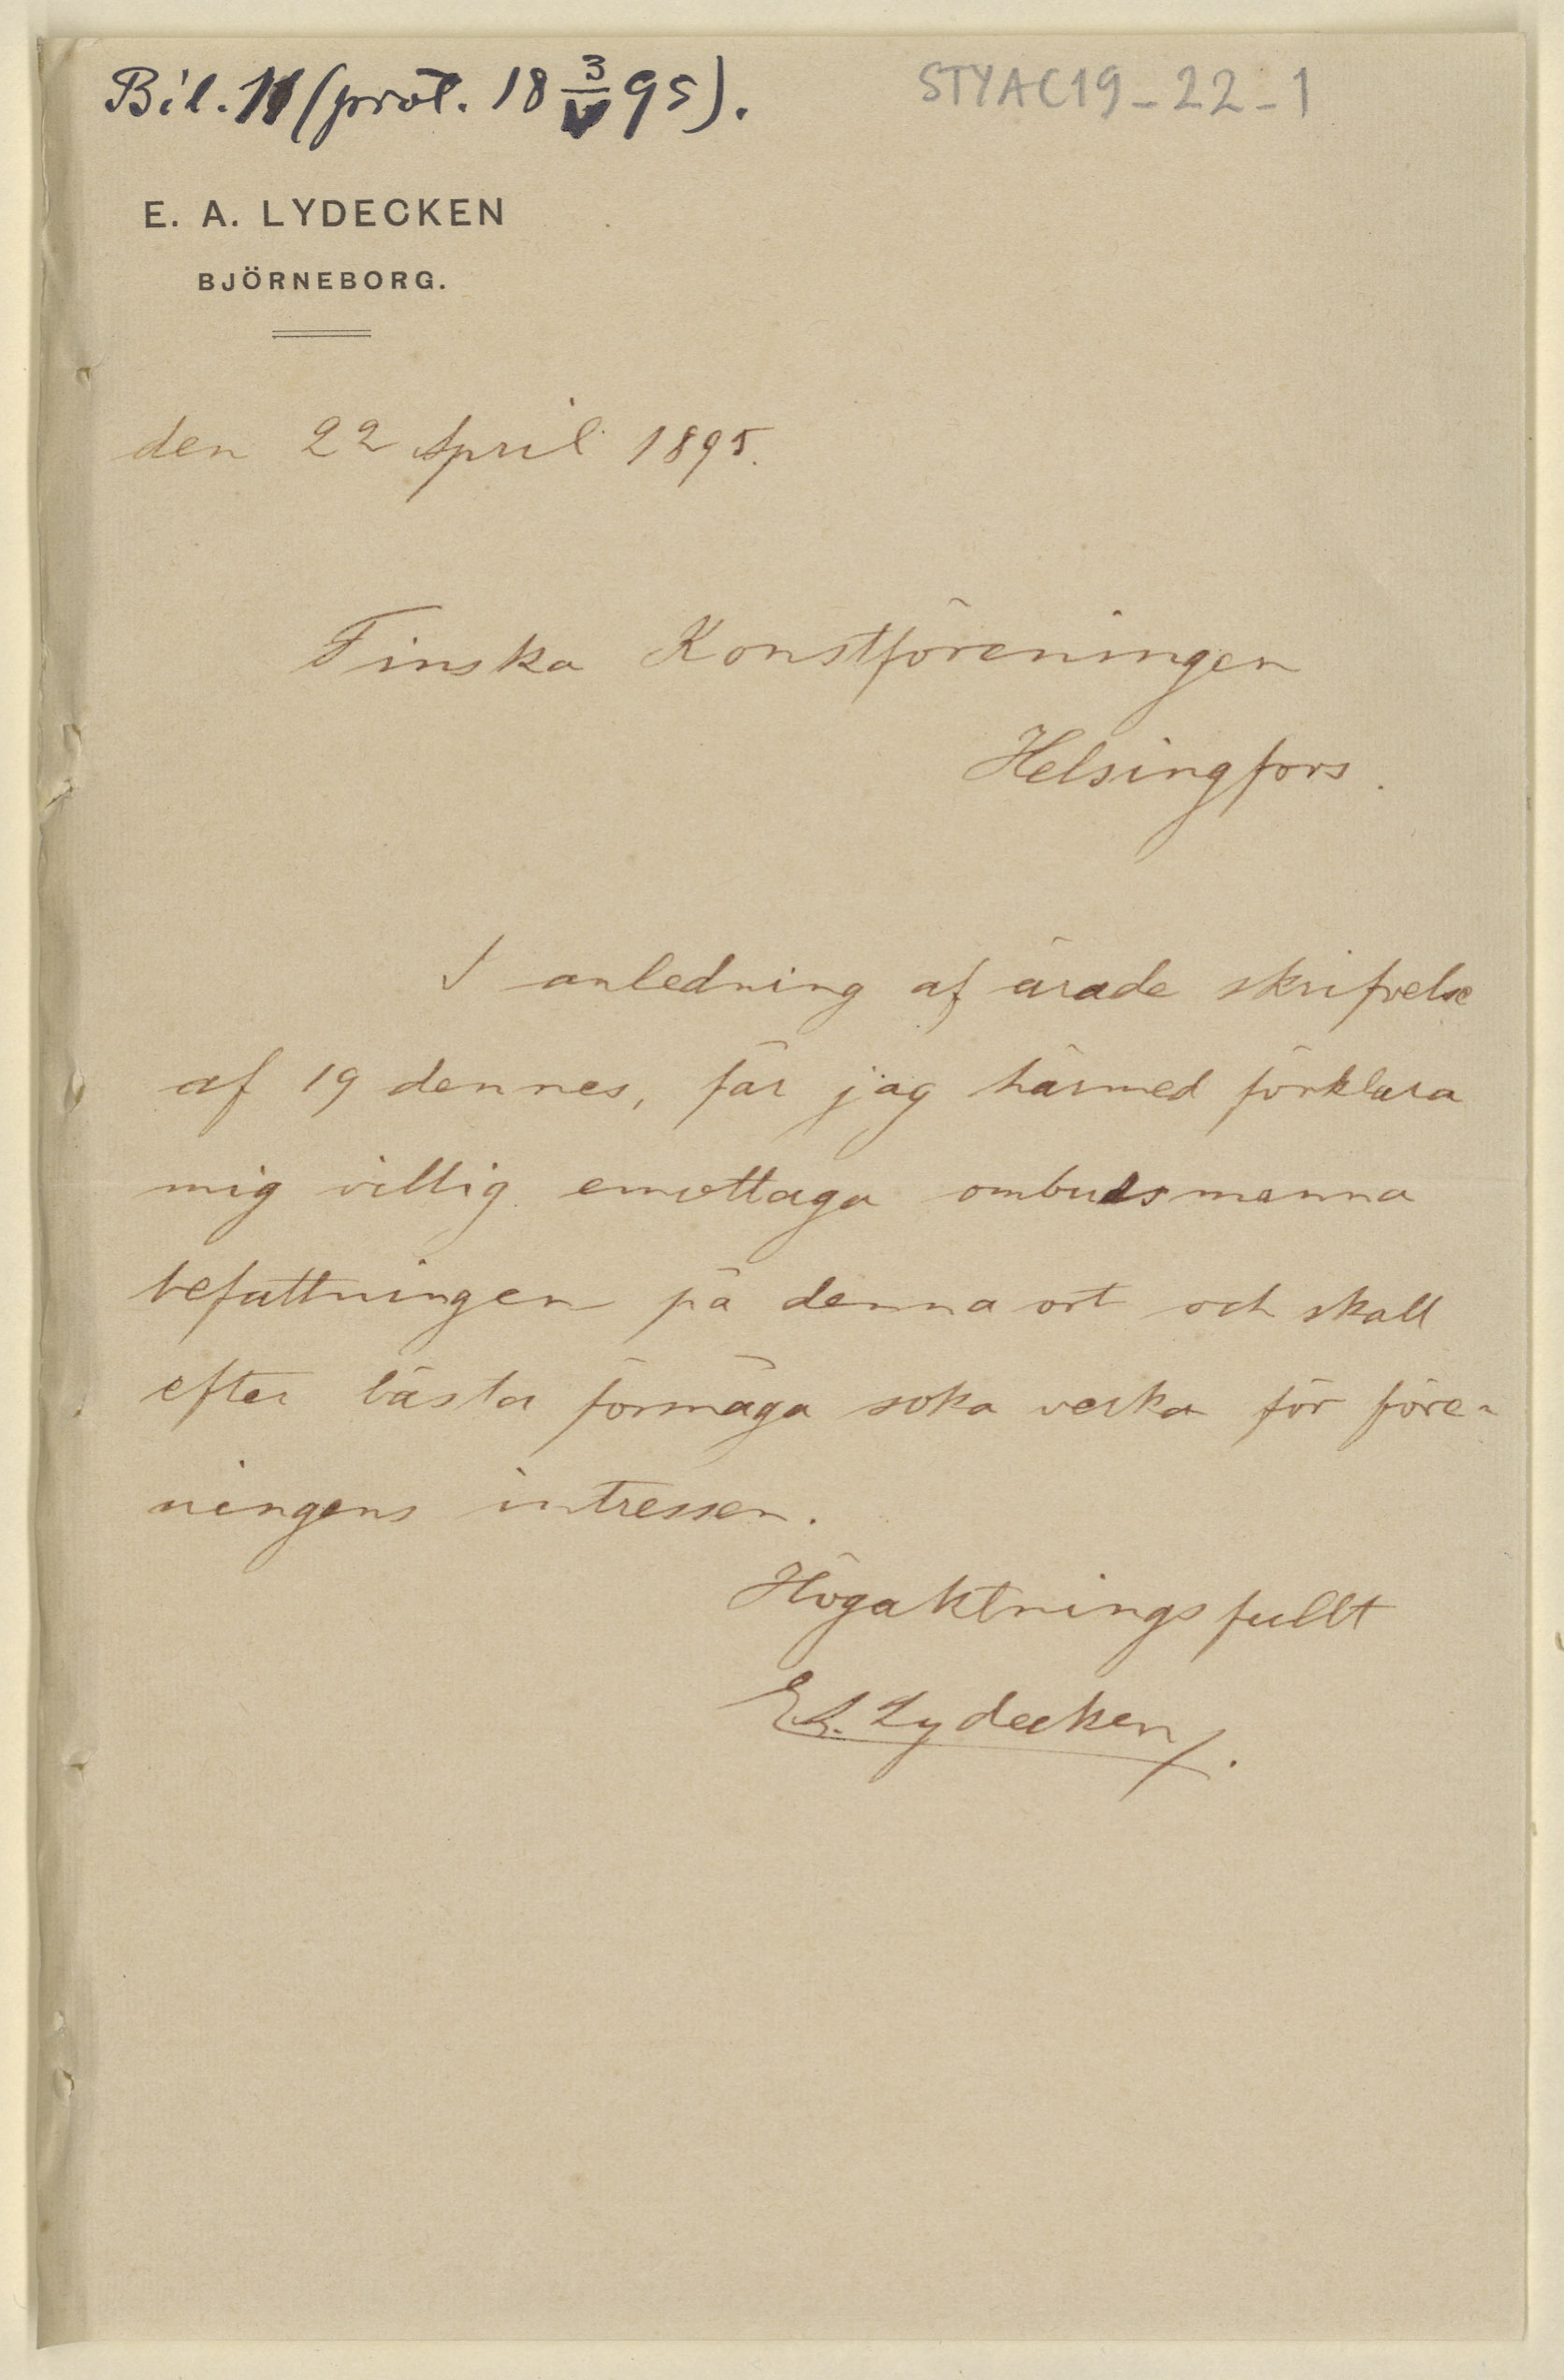 Bil. 11 (prot. 18 3/V 95).
STYAC19-22-1
E. A. LYDECKEN
BJÖRNEBORG.
den 22 April 1895.
Finska Konstföreningen
Helsingfors.
I anledning af ärade skrifvelse
af 19 dennes, får jag härmed förklara
mig villig emottaga ombudsmanna
befattningen på denna ort och skall
efter bästa förmåga söka verka för före-
ningens intressen.
Högaktningsfullt
E.A. Lydecken